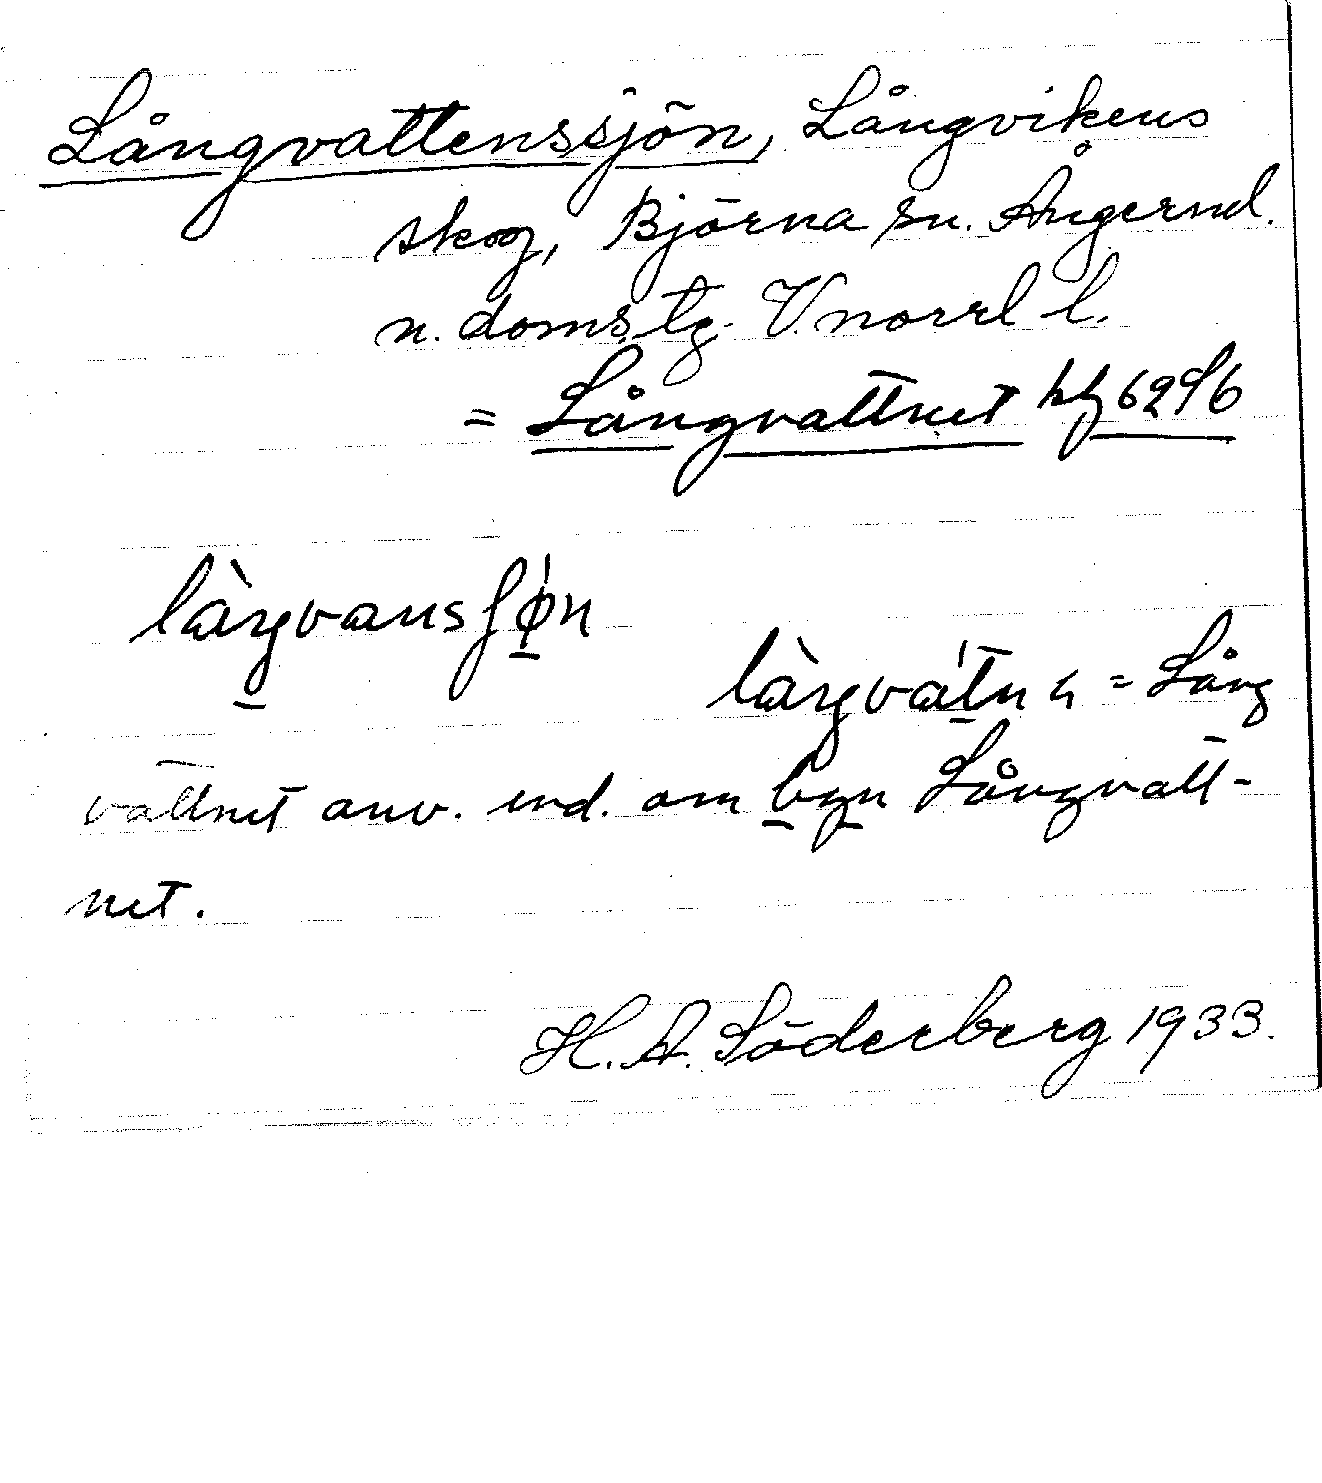 Långvattenssjön, Långvikens
skog, Björna sn. Ångerml.
n. doms. tg. V. norrl l.
= Långvattnet kbl 6296
= Lång
vattnet anv. end. om byn Långvatt-
net.
H. A. Söderberg 1933.